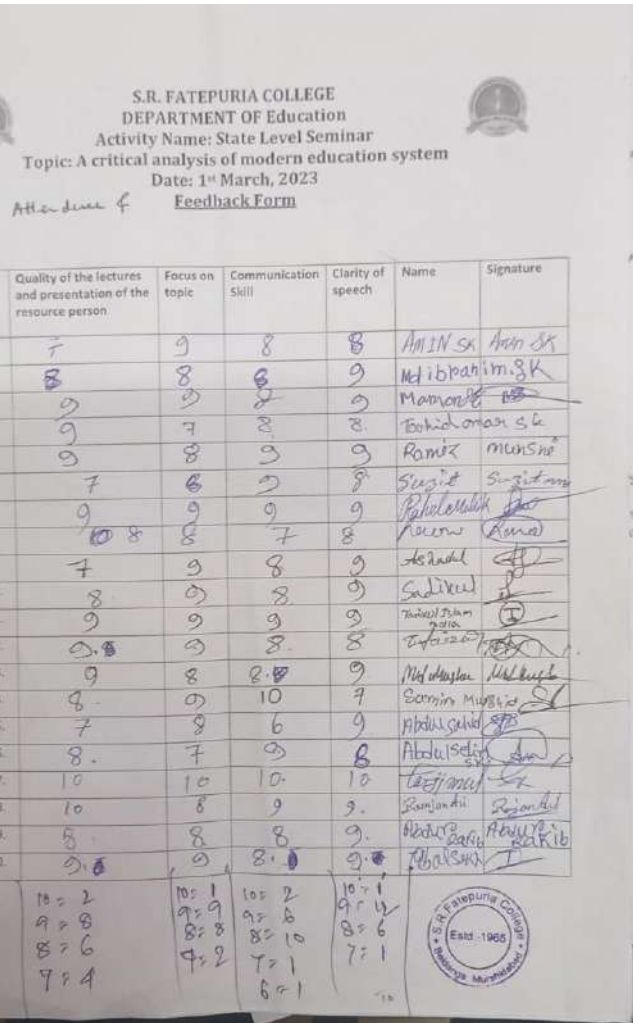 S.R. FATEPURIA COLLEGE
DEPARTMENT OF Education
Activity Name: State Level Seminar
Topic: A critical analysis of modern education system
Date: 1st March, 2023
Attendence & Feedback Form
Quality of the lectures and presentation of the resource person Focus on topic Communication Skill Clarity of speech Name Signature
7 9 8 8 AMIN SK Amin SK
8 8 8 9 Md ibrahim.SK
9 9 8 9 Mamon
9 7 8 8. Touhid omar sk
9 8 9 9 Ramiz munshi
7 8 9 8 Suzit
9 9 9 9
8 8 7 8
7 9 8 9 Ashadul
8 9 8 9 Sadikul
9 9 9 9 Islam
9. 9 8. 8
9 8 8. 9 Md
8. 9 10 7 Samim Murshid
7 8 6 9 Abdus sahid
8. 7 9 8 Abdul Selim SK
10 10 10. 10
10 8 9 9. Ranjan Ali Ranjan Ali
8. 8 8 9. Abdur Rakib Abdur Rakib
9. 9 8. 9. Iqbal Sekh
10 = 2 10 = 1 10 = 2 10 = 1
9 = 8 9 = 9 9 = 6 9 = 12
8 = 6 8 = 8 8 = 10 8 = 6
7 = 4 7 = 2 7 = 1 7 = 1
6 = 1
S.R. Fatepuria College
Estd.-1965
Beldanga Murshidabad